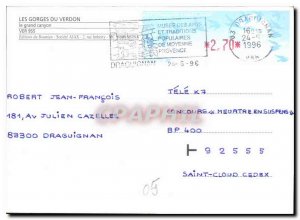 LES GORGES DU VERDON
le grand canyon
VER 955
MUSEE DES ARTS
ET TRADITIONS
POPULAIRES
DE MOYENNE
PROVENCE
DRAGUIGNAN
24-6-96
83 DRAGUIGNAN
16H
24-6
1996
VAR
*2,70*
ROBERT JEAN-FRANÇOIS
181, AV JULIEN CAZELLES
83300 DRAGUIGNAN
TÉLÉ K7
CONCOURS « MEURTRE EN SUSPENS »
BP 400
92555
SAINT-CLOUD CEDEX
05